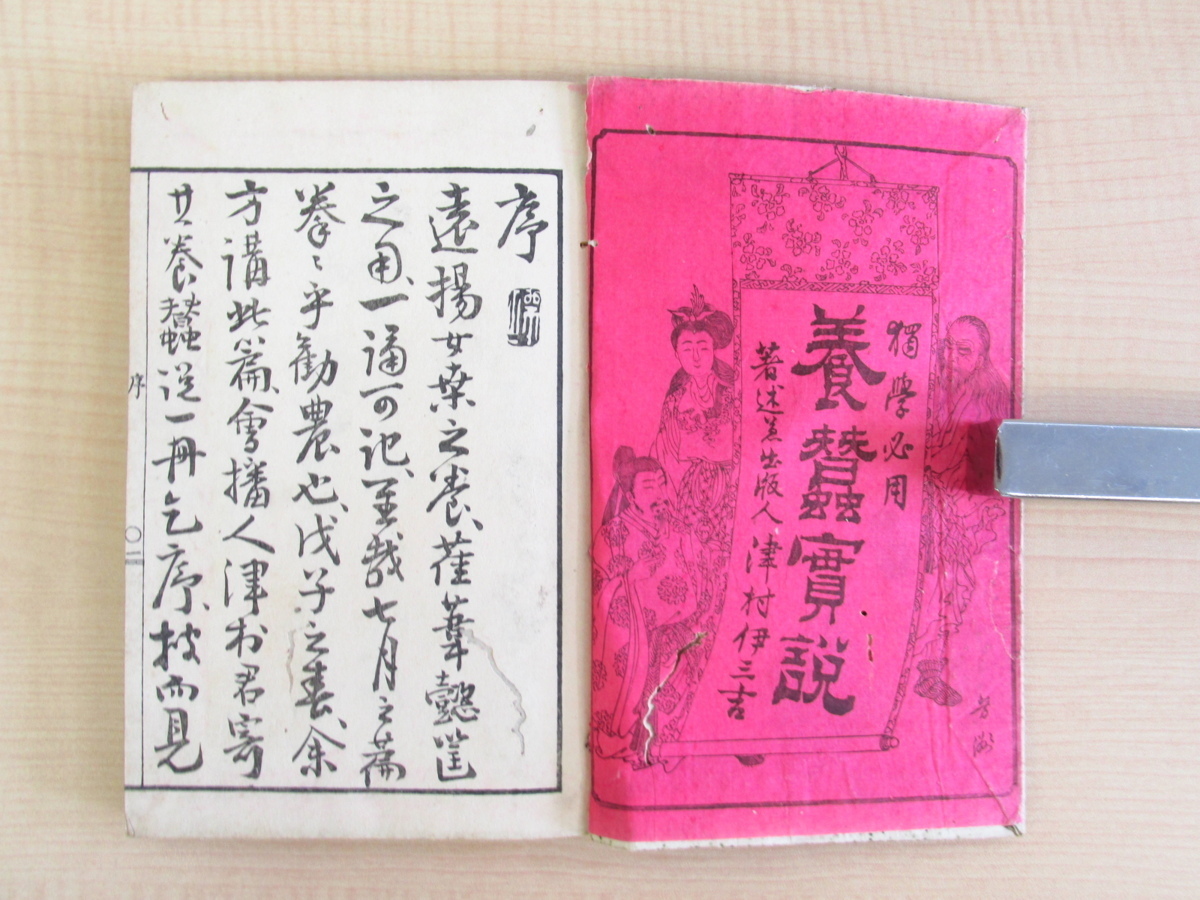 獨學必用
養蠶實說
著述兼出版人 津村伊三吉
芳洲
序
遠揚女桑之養、萑葦懿筐
之用、一誦可記、至哉七月之篇
拳〻乎勸農也、戊子之春、余
方講此篇、會播人津村君寄
其養蠶說一冊乞序、披而見
序
〇一